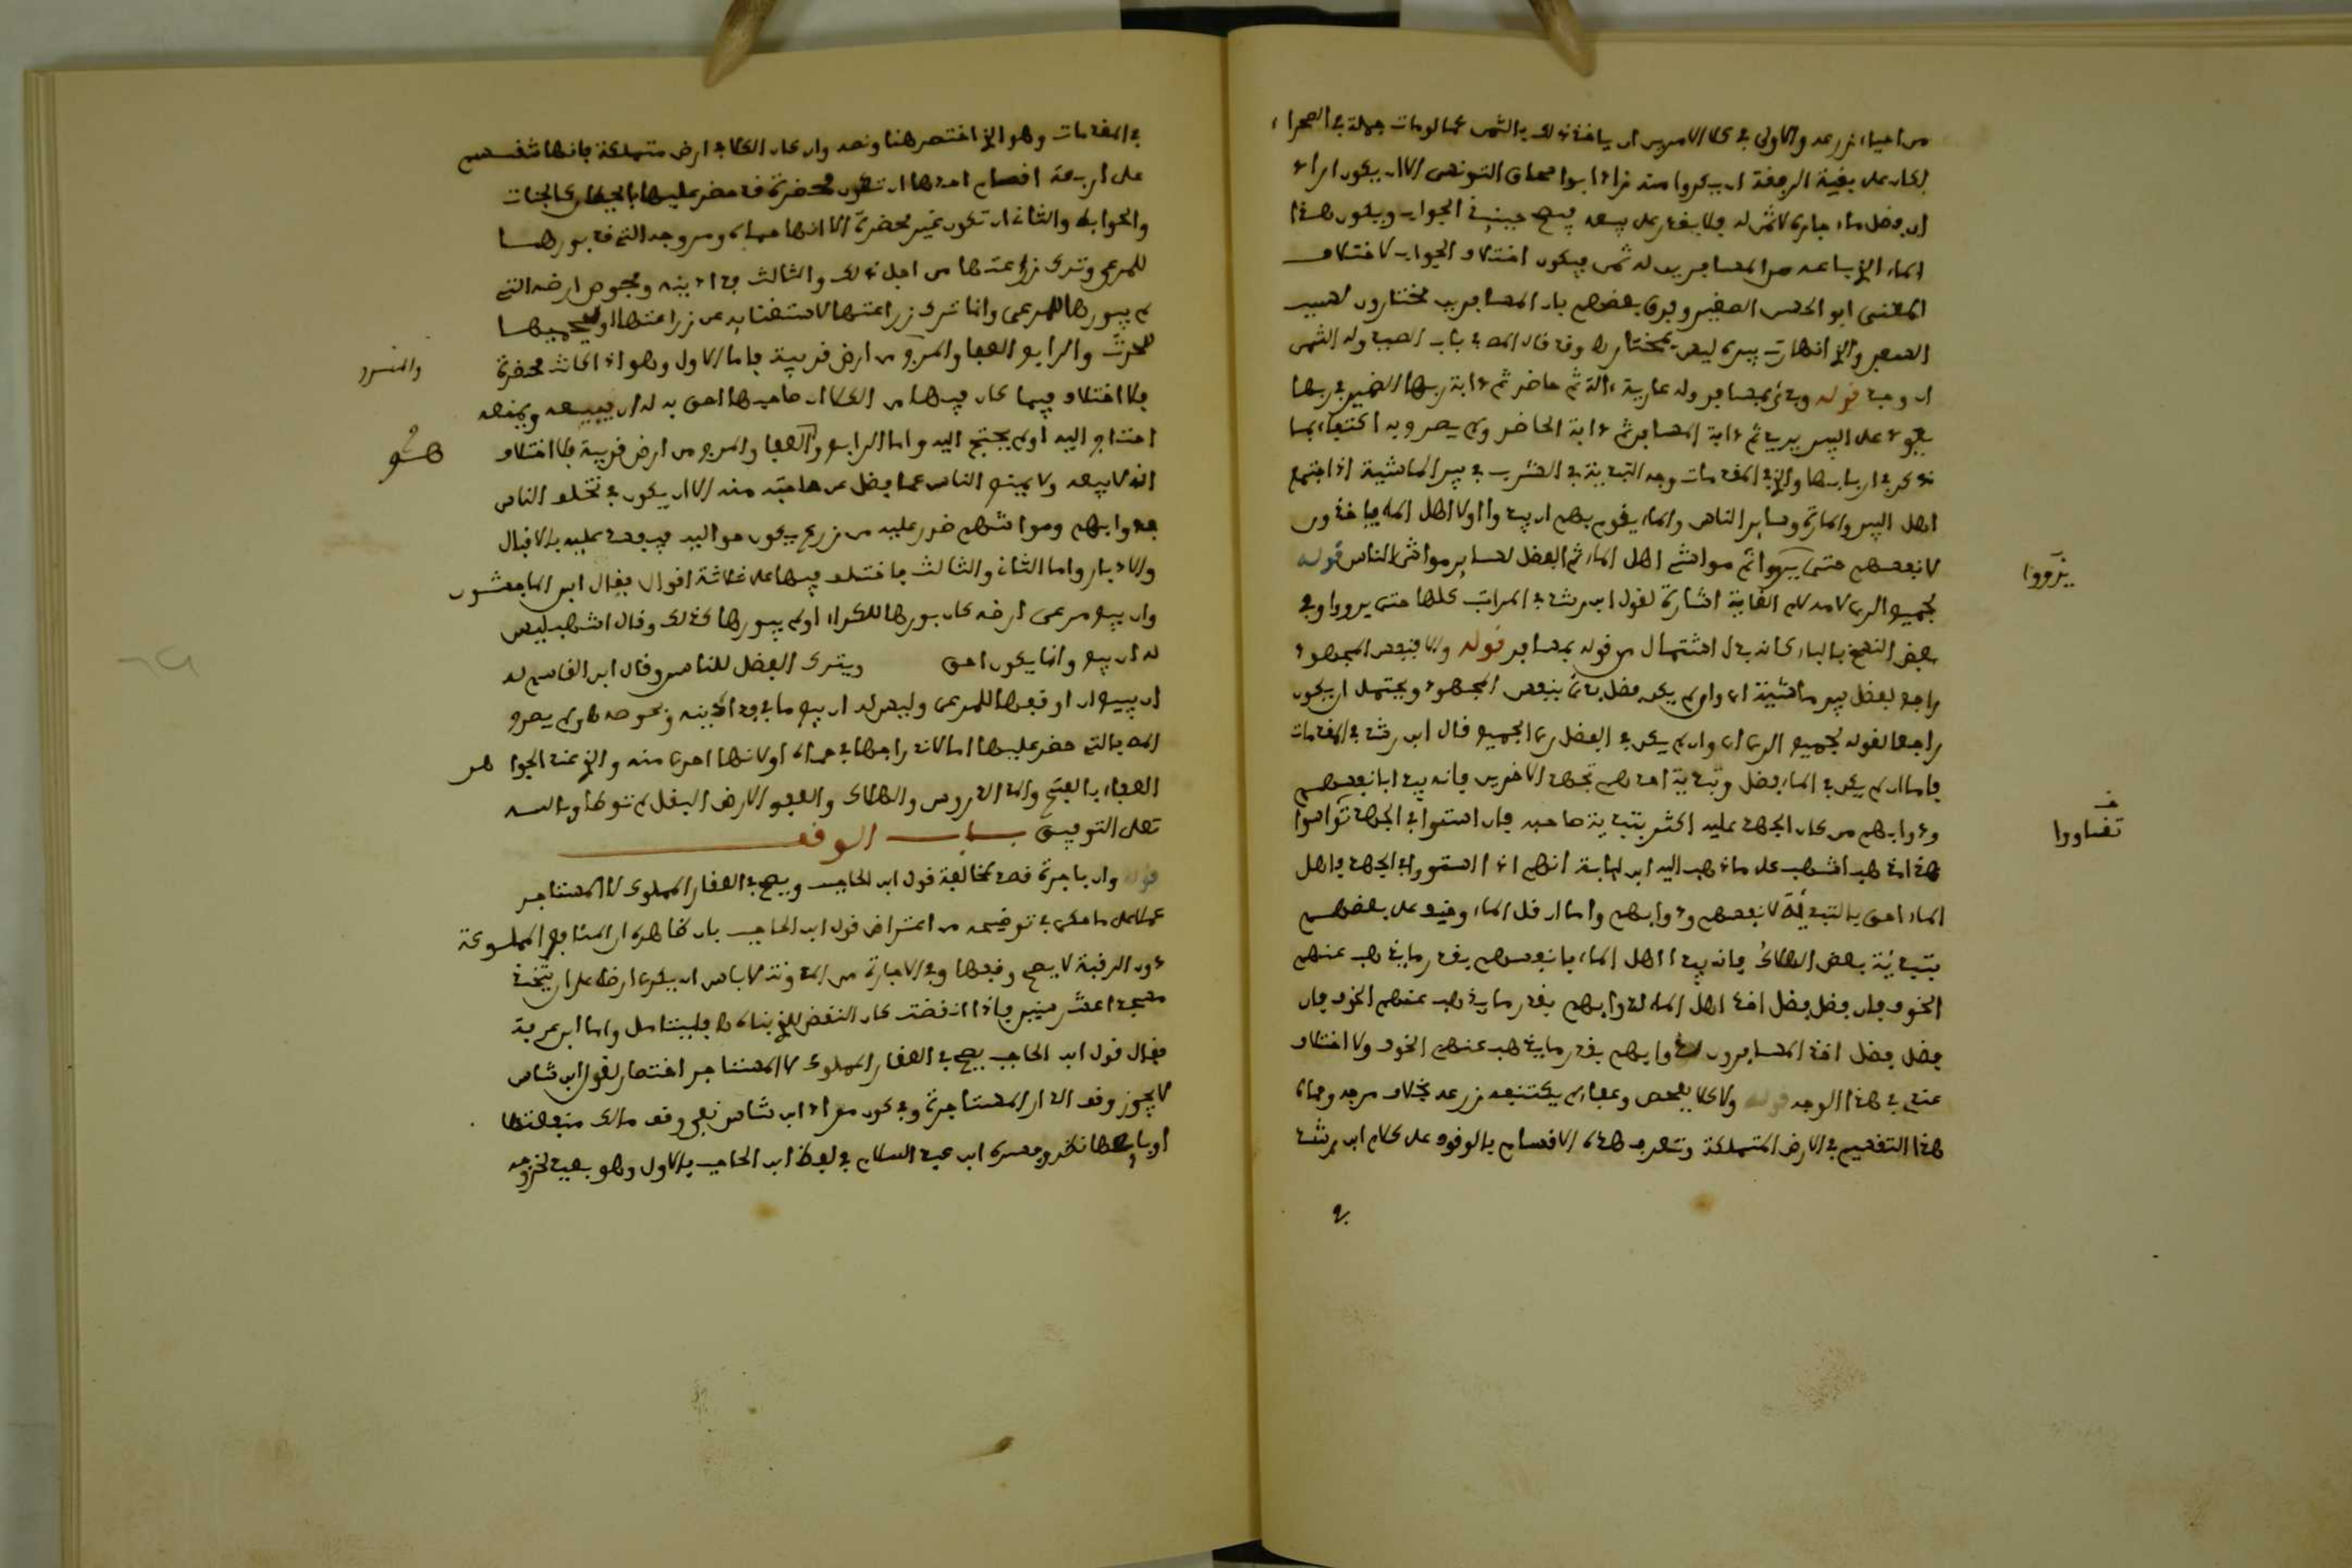 من احياء زرعه والاولى في كلا الامرين ان ياخذ ذلك بالثمن كما لو مات جملة في الصحراء
لكان على بقية الرفقة ان يكروا منه زاد ابو اسحاق التونسي الا ان يكون اراد
ان فضل ماء جاره لا ثمن له فلا يقدر على بيعه فيصح حينئذ الجواب ويكون هذا
الماء الذي باعه من المسافرين له ثمن فيكون اختلاف الجواب لاختلاف
المعنى ابو الحسن الصغير وفرق بعضهم بان المسافرين مختارون لسبب
السفر والذي انهارت بيره ليس بمختار
ان وجد قوله وبدئ بمسافر وله عارية ءالة ثم حاضر ثم دابة ربها الضمير في ربها
يعود على البير يريد ثم دابة المسافر ثم دابة الحاضر ولم يصرح به اكتفاء بما
ذكر في اربابها والذي في المقدمات وجه التبدية في الشرب في بير الماشية اذا اجتمع
اهل البير والمارة وساير الناس والماء يقوم بهم ان يبدا اولا اهل الماء فياخذون
لانفسهم حتى يرووا ثم مواشي اهل الماء ثم الفضل لساير مواشي الناس قوله
بجميع الري لامه لام الغاية اشارة لقول ابن رشد في المراتب كلها حتى يرووا وفي
بعض النسخ بالباء كانه بدل اشتمال من قوله بمسافر قوله والا فبنفس المجهود
راجع لفضل بير ماشية اي وان لم يكن فضل بدئ بنفس المجهود ويحتمل ان يكون
راجعا لقوله بجميع الري اي وان لم يكن في الفضل ري الجميع قال ابن رشد في المقدمات
فاما ان لم يكن في الماء فضل وتبدية احدهم تجهد الاخرين فانه يبدا بانفسهم
ودوابهم من كان الجهد عليه اكثر بتبدية صاحبه فان استووا في الجهد تواسوا
هذا مذهب اشهب على ما ذهب اليه ابن لبابة انهم اذا استووا في الجهد فاهل
الماء احق بالتبدئة لانفسهم ودوابهم واما ان قل الماء وخيف على بعضهم
بتبدئة بعض الهلاك فانه يبدا اهل الماء بانفسهم بقدر ما يذهب عنهم
الخوف فان فضل فضل اخذ اهل الماء لدوابهم بقدر ما يذهب عنهم الخوف فان
فضل فضل اخذ المسافرون لدوابهم بقدر ما يذهب عنهم الخوف ولا اختلاف
عندي في هذا الوجه قوله ولا كلا بفحص وعفاء لم يكتنفه زرعه بخلاف مرجه وحماه
هذا التقسيم في الارض المتملكة وتتعرف هذه الاقسام بالوقوف على كلام ابن رشد
في
يرووا
تساووا
في المقدمات وهو الذي اختصر هنا ونصه وان كان الكلا في ارض متملكة فانها تنقسم
على اربعة اقسام احدها ان تكون محضرة قد حضر عليها بالحيطان كالجنات
والحوايط والثاني ان تكون غير محضرة الا انها حماه ومروجه التي قد بورها
للمرعى وترك زراعتها من اجل ذلك والثالث فدادينه وفحوص ارضه التي
لم يبورها للمرعى وانما ترك زراعتها لاستغنايه عن زراعتها او ليجمها
للحرث والرابع العفا والمرج من ارض قريبة فاما الاول وهو اذا كانت محضرة
فلا اختلاف فيما كان فيها من الكلا ان صاحبها احق به له ان يبيعه ويمنعه
احتاج اليه او لم يحتج اليه واما الرابع والعفا والمرج من ارض قريبة فلا اختلاف
انه لا يبيعه ولا يمنع الناس عما فضل عن حاجته منه الا ان يكون في تخلل الناس
بدوابهم ومواشيهم ضرر عليه من زرع يكون حواليه فيفسد عليه بالاقبال
والادبار واما الثاني والثالث فاختلف فيهما على ثلاثة اقوال فقال ابن الماجشون
وان يبيع مرعى ارضه كان بورها للكراء او لم يبورها كذلك وقال اشهب ليس
له ان يبيع وانما يكون احق ويترك الفضل للناس وقال ابن القاسم له
ان يبيع ان اوقفها للمرعى وليس له ان يبيع ما في فدادينه وفحوصه ولم يصرح
المص بالتي حضر عليها اما لاندراجها في حماه او لانها احرى منه والذي عند الجوهر
العفاء بالفتح والمد الدروس والهلاك والعفو الارض الغفل لم توطا وبالله
تعالى التوفيق باب الوقف
قوله وان باجرة قصد مخالفة قول ابن الحاجب ويصح في العقار المملوك لا المستاجر
عملا على ما حكى في توضيحه من اعتراض قول ابن الحاجب بان ظاهره ان المنافع المملوكة
دون الرقبة لا يصح وقفها وفي الاجارة من المدونة لا باس ان يكري ارضه على ان يتخذ
مسجدا عشر سنين فاذا انقضت كان النقض للذي بناه فليتامل واما ابن عرفة
فقال قول ابن الحاجب يصح في العقار المملوك لا المستاجر اختصار لقول ابن شاس
لا يجوز وقف الدار المستاجرة وفي كون مراد ابن شاس نفي وقف مالك منفعتها
او بايعها نظر وفسره ابن عبد السلام في لفظ ابن الحاجب بالاول وهو بعيد لخروجه